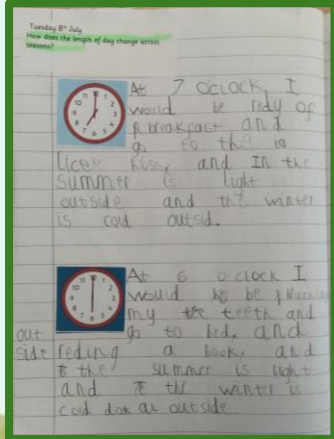 Tuesday 8th July
How does the length of day change across
seasons?
At 7 OCLOCK I
would be redy of
breakfast and
go to the
and In the
Summer is light
outside and the winter
is cold outsid.
At 6 I
would be
my teeth and
go to bed, and
out
side reding a book, and
the summer is light
and the winter is
cold outside